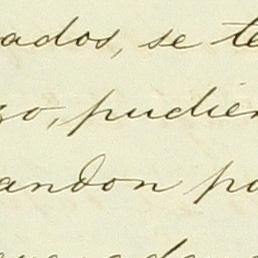 ados, se te
zo, pudien
andon po